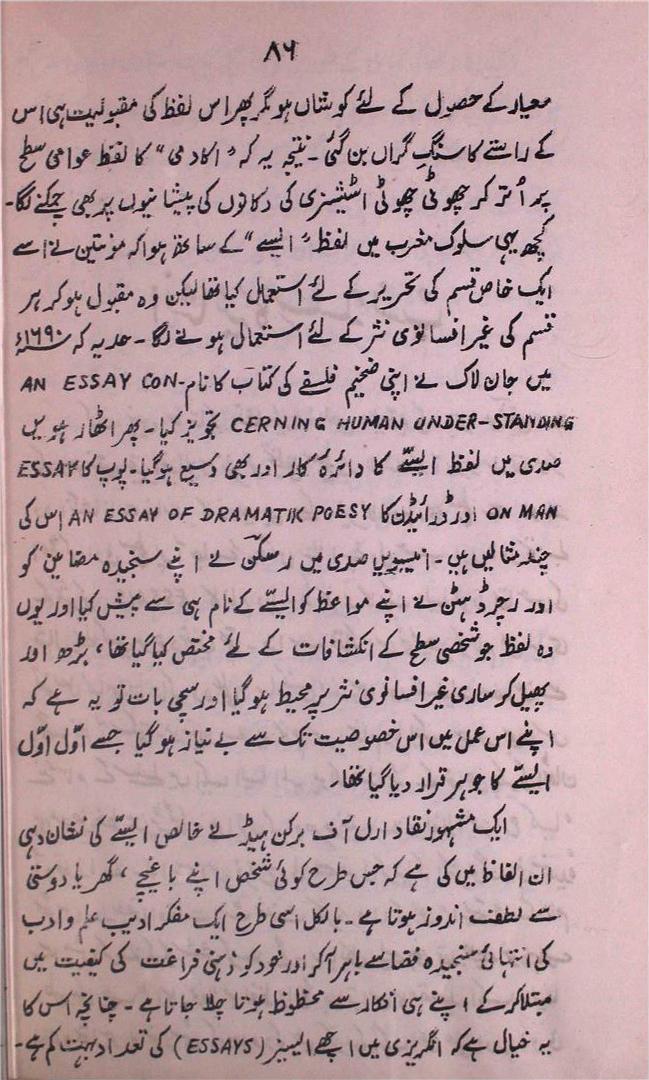 ۸۶
معیار کے حصول کے لئے کوشاں ہو مگر پھر اس لفظ کی مقبولیت ہی اس
کے راستے کا سنگِ گراں بن گئی ۔ نتیجہ یہ کہ " اکادمی " کا لفظ عوامی سطح
پر اُتر کر چھوٹی چھوٹی اسٹیشنری کی دکانوں کی پیشانیوں پر بھی چمکنے لگا۔
کچھ یہی سلوک مغرب میں لفظ " ایسے " کے ساتھ ہوا کہ مونتین نے اسے
ایک خاص قسم کی تحریر کے لئے استعمال کیا تھا لیکن وہ مقبول ہو کر ہر
قسم کی غیر افسانوی نثر کے لئے استعمال ہونے لگا ۔ حد یہ کہ ۱۶۹۰ء
میں جان لاک نے اپنی ضخیم فلسفے کی کتاب کا نام AN ESSAY CON-
CERNING HUMAN UNDER-STANDING تجویز کیا ۔ پھر اٹھارہویں
صدی میں لفظ ایسّے کا دائرہ کار اور بھی وسیع ہو گیا ۔ پوپ کا ESSAY
ON MAN اور ڈرائیڈن کا AN ESSAY OF DRAMATIK POESY اس کی
چند مثالیں ہیں ۔ انیسویں صدی میں رسکن نے اپنے سنجیدہ مضامین کو
اور رچرڈ ہٹن نے اپنے مواعظ کو ایسّے کے نام ہی سے پیش کیا اور یوں
وہ لفظ جو شخصی سطح کے انکشافات کے لئے مختص کیا گیا تھا ، بڑھ اور
پھیل کر ساری غیر افسانوی نثر پر محیط ہو گیا اور سچی بات تو یہ ہے کہ
اپنے اس عمل میں اس خصوصیت تک سے بے نیاز ہو گیا جسے اوّل اوّل
ایسّے کا جوہر قرار دیا گیا تھا ۔
ایک مشہور نقاد ارل آف برکن ہیڈ نے خالص ایسّے کی نشان دہی
ان الفاظ میں کی ہے کہ جس طرح کوئی شخص اپنے باغیچے ، گھر یا دوستی
سے لطف اندوز ہوتا ہے ۔ بالکل اسی طرح ایک مفکر ادیب علم و ادب
کی انتہائی سنجیدہ فضا سے باہر آ کر اور خود کو ذہنی فراغت کی کیفیت میں
مبتلا کر کے اپنے ہی افکار سے محظوظ ہوتا چلا جاتا ہے ۔ چنانچہ اس کا
یہ خیال ہے کہ انگریزی میں اچھے ایسیز (ESSAYS) کی تعداد بہت کم ہے ۔